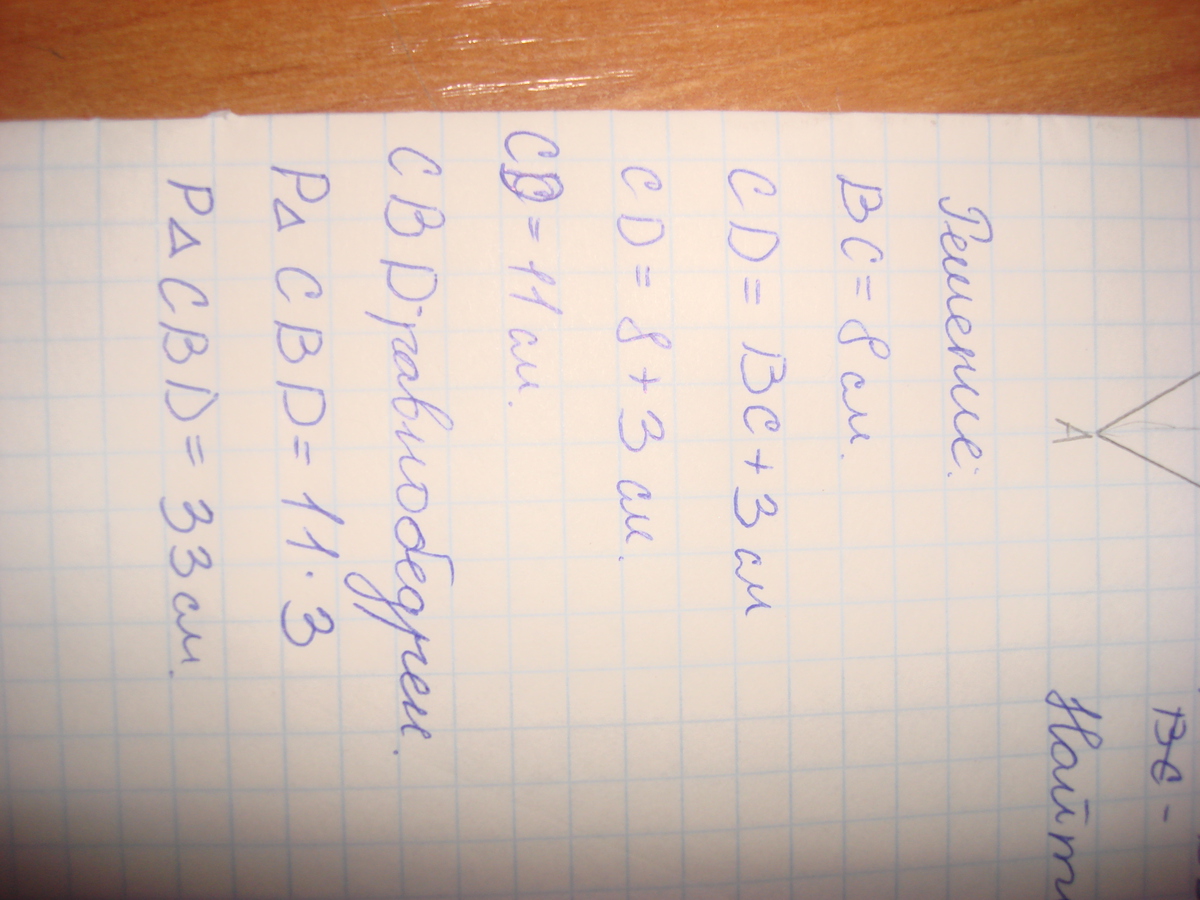 BC -
A
Найт
Решение:
BC = 8 см.
CD = BC + 3 см
CD = 8 + 3 см.
CD = 11 см.
CBD-равнобедрен.
P∆ CBD = 11 · 3
P∆ CBD = 33 см.